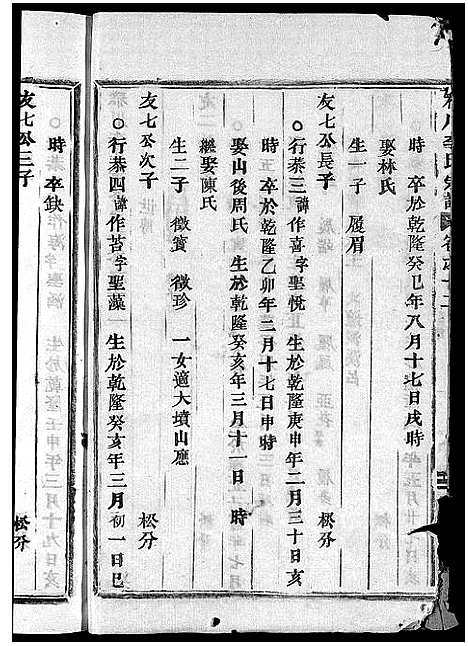 時 卒於乾隆癸巳年八月十七日戌時
娶林氏
生一子 履眉
友七公長子 松分
○行恭三諱作喜字聖悅 生於乾隆庚申年二月三十日亥
時 卒於乾隆乙卯年二月十七日申時
娶山後周氏 生於乾隆癸亥年三月十一日 時
繼娶陳氏
生二子 徵賓 徵珍 一女適大墳山應
友七公次子 松分
○行恭四諱作苔字聖藻 生於乾隆癸亥年三月初一日巳
時 卒缺
友七公三子 松分